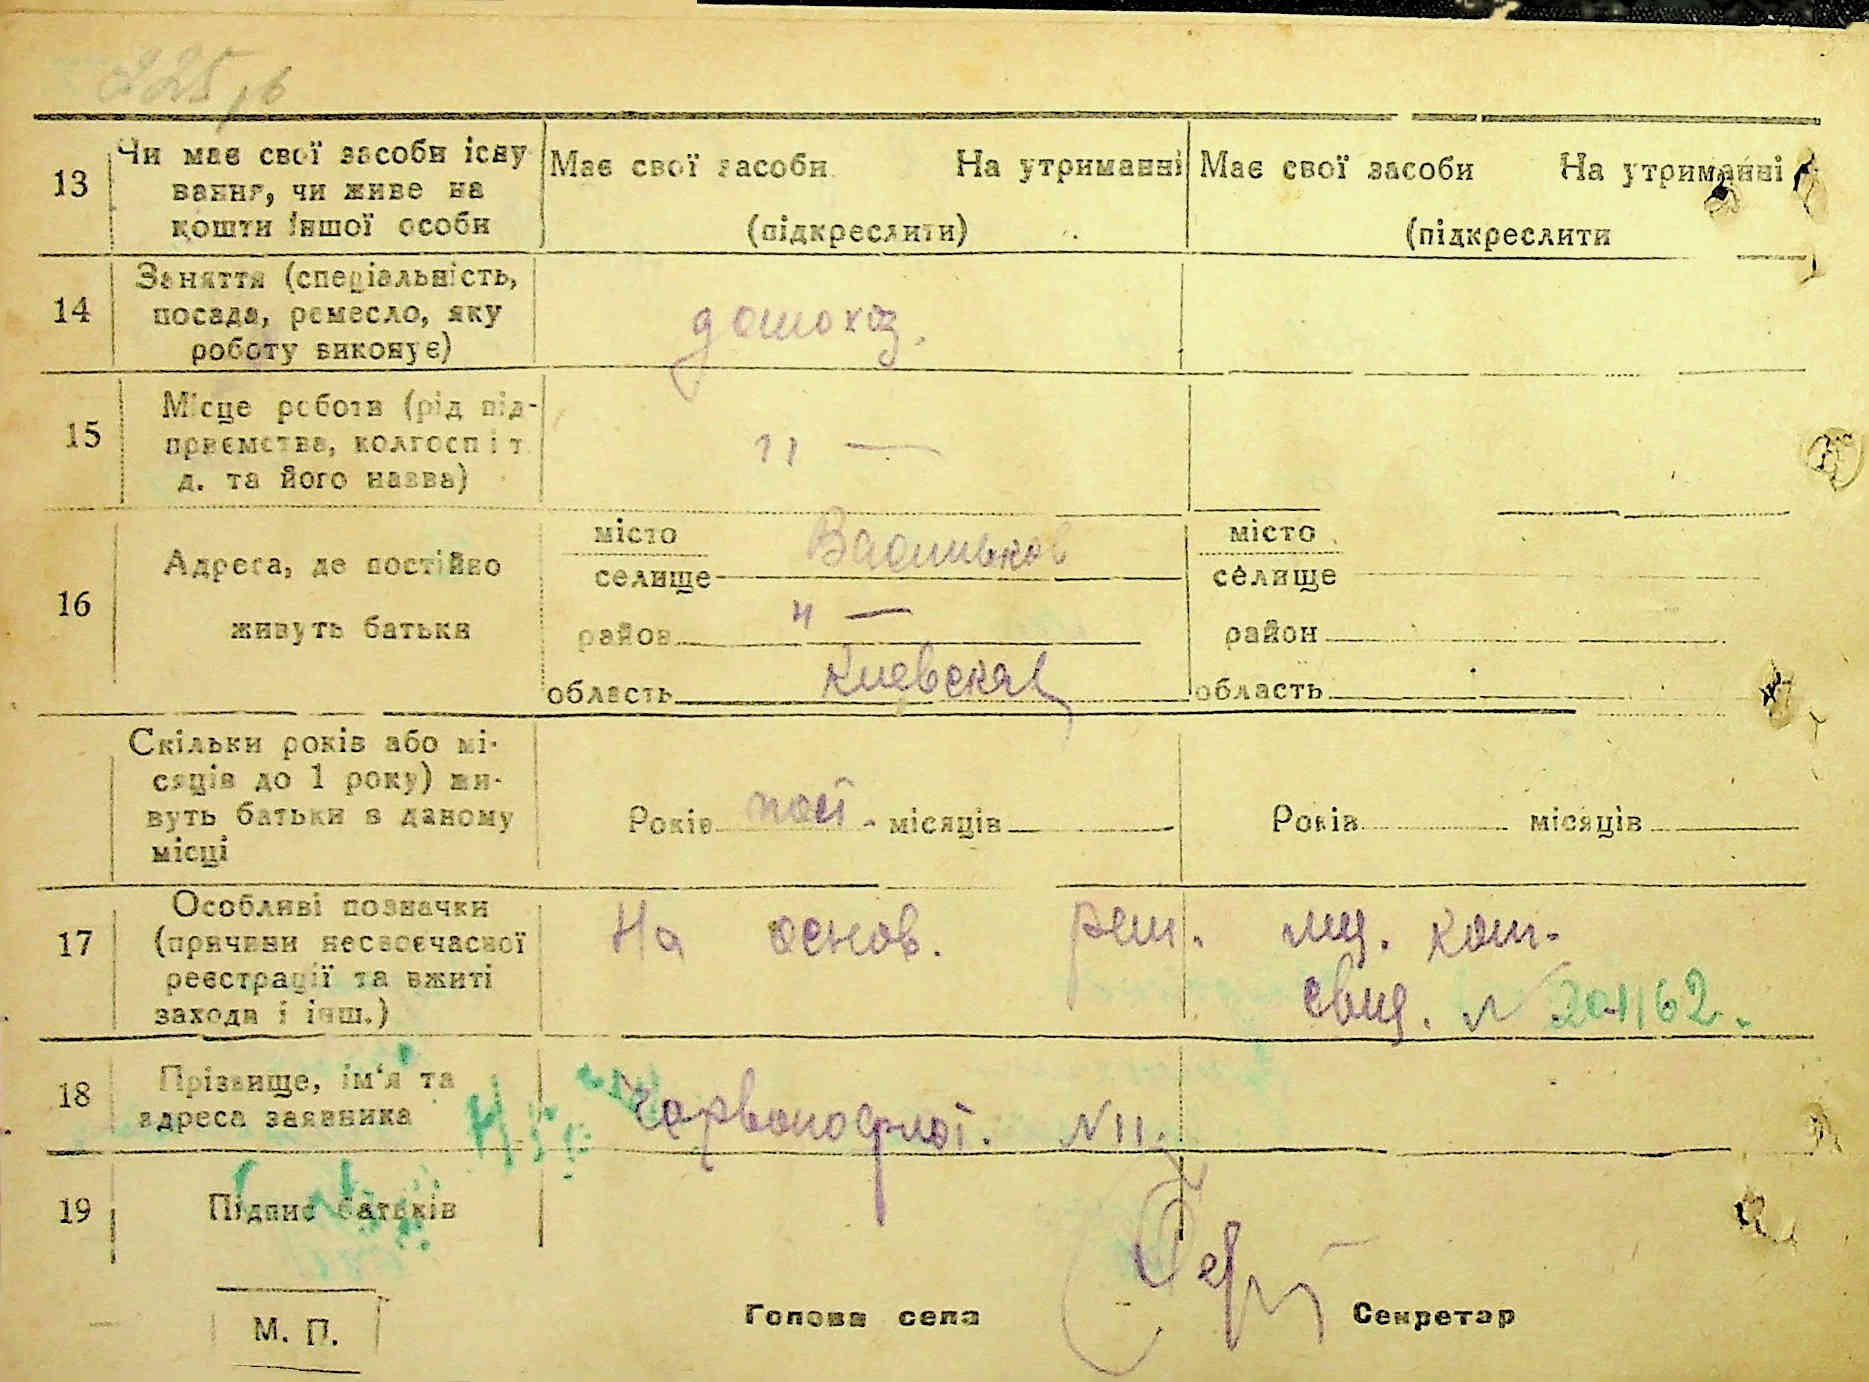 225,6
13 Чи має свої засоби існу
вання, чи живе на
кошти іншої особи
Має свої засоби На утриманні
(підкреслити)
Має свої засоби На утриманні
(підкреслити
14 Заняття (спеціальність,
посада, ремесло, яку
роботу виконує)
домохоз.
15 Місце роботи (рід під-
приємства, колгосп і т
д. та його назва)
" —
16 Адреса, де постійно
живуть батьки
місто Васильков
селище
район " —
область Киевская
місто
селище
район
область
Скільки років або мі-
сяців до 1 року) жи-
вуть батьки в даному
місці
Років пост. місяців
Років місяців
17 Особливі позначки
(причини несвоєчасної
реєстрації та вжиті
заходи і інш.)
На основ. реш. мед. ком.
свид. № 204162.
18 Прізвище, ім‘я та
адреса заявника
Червонофлот. № 11.
19 Підпис батьків
М. П.
Голова села Секретар